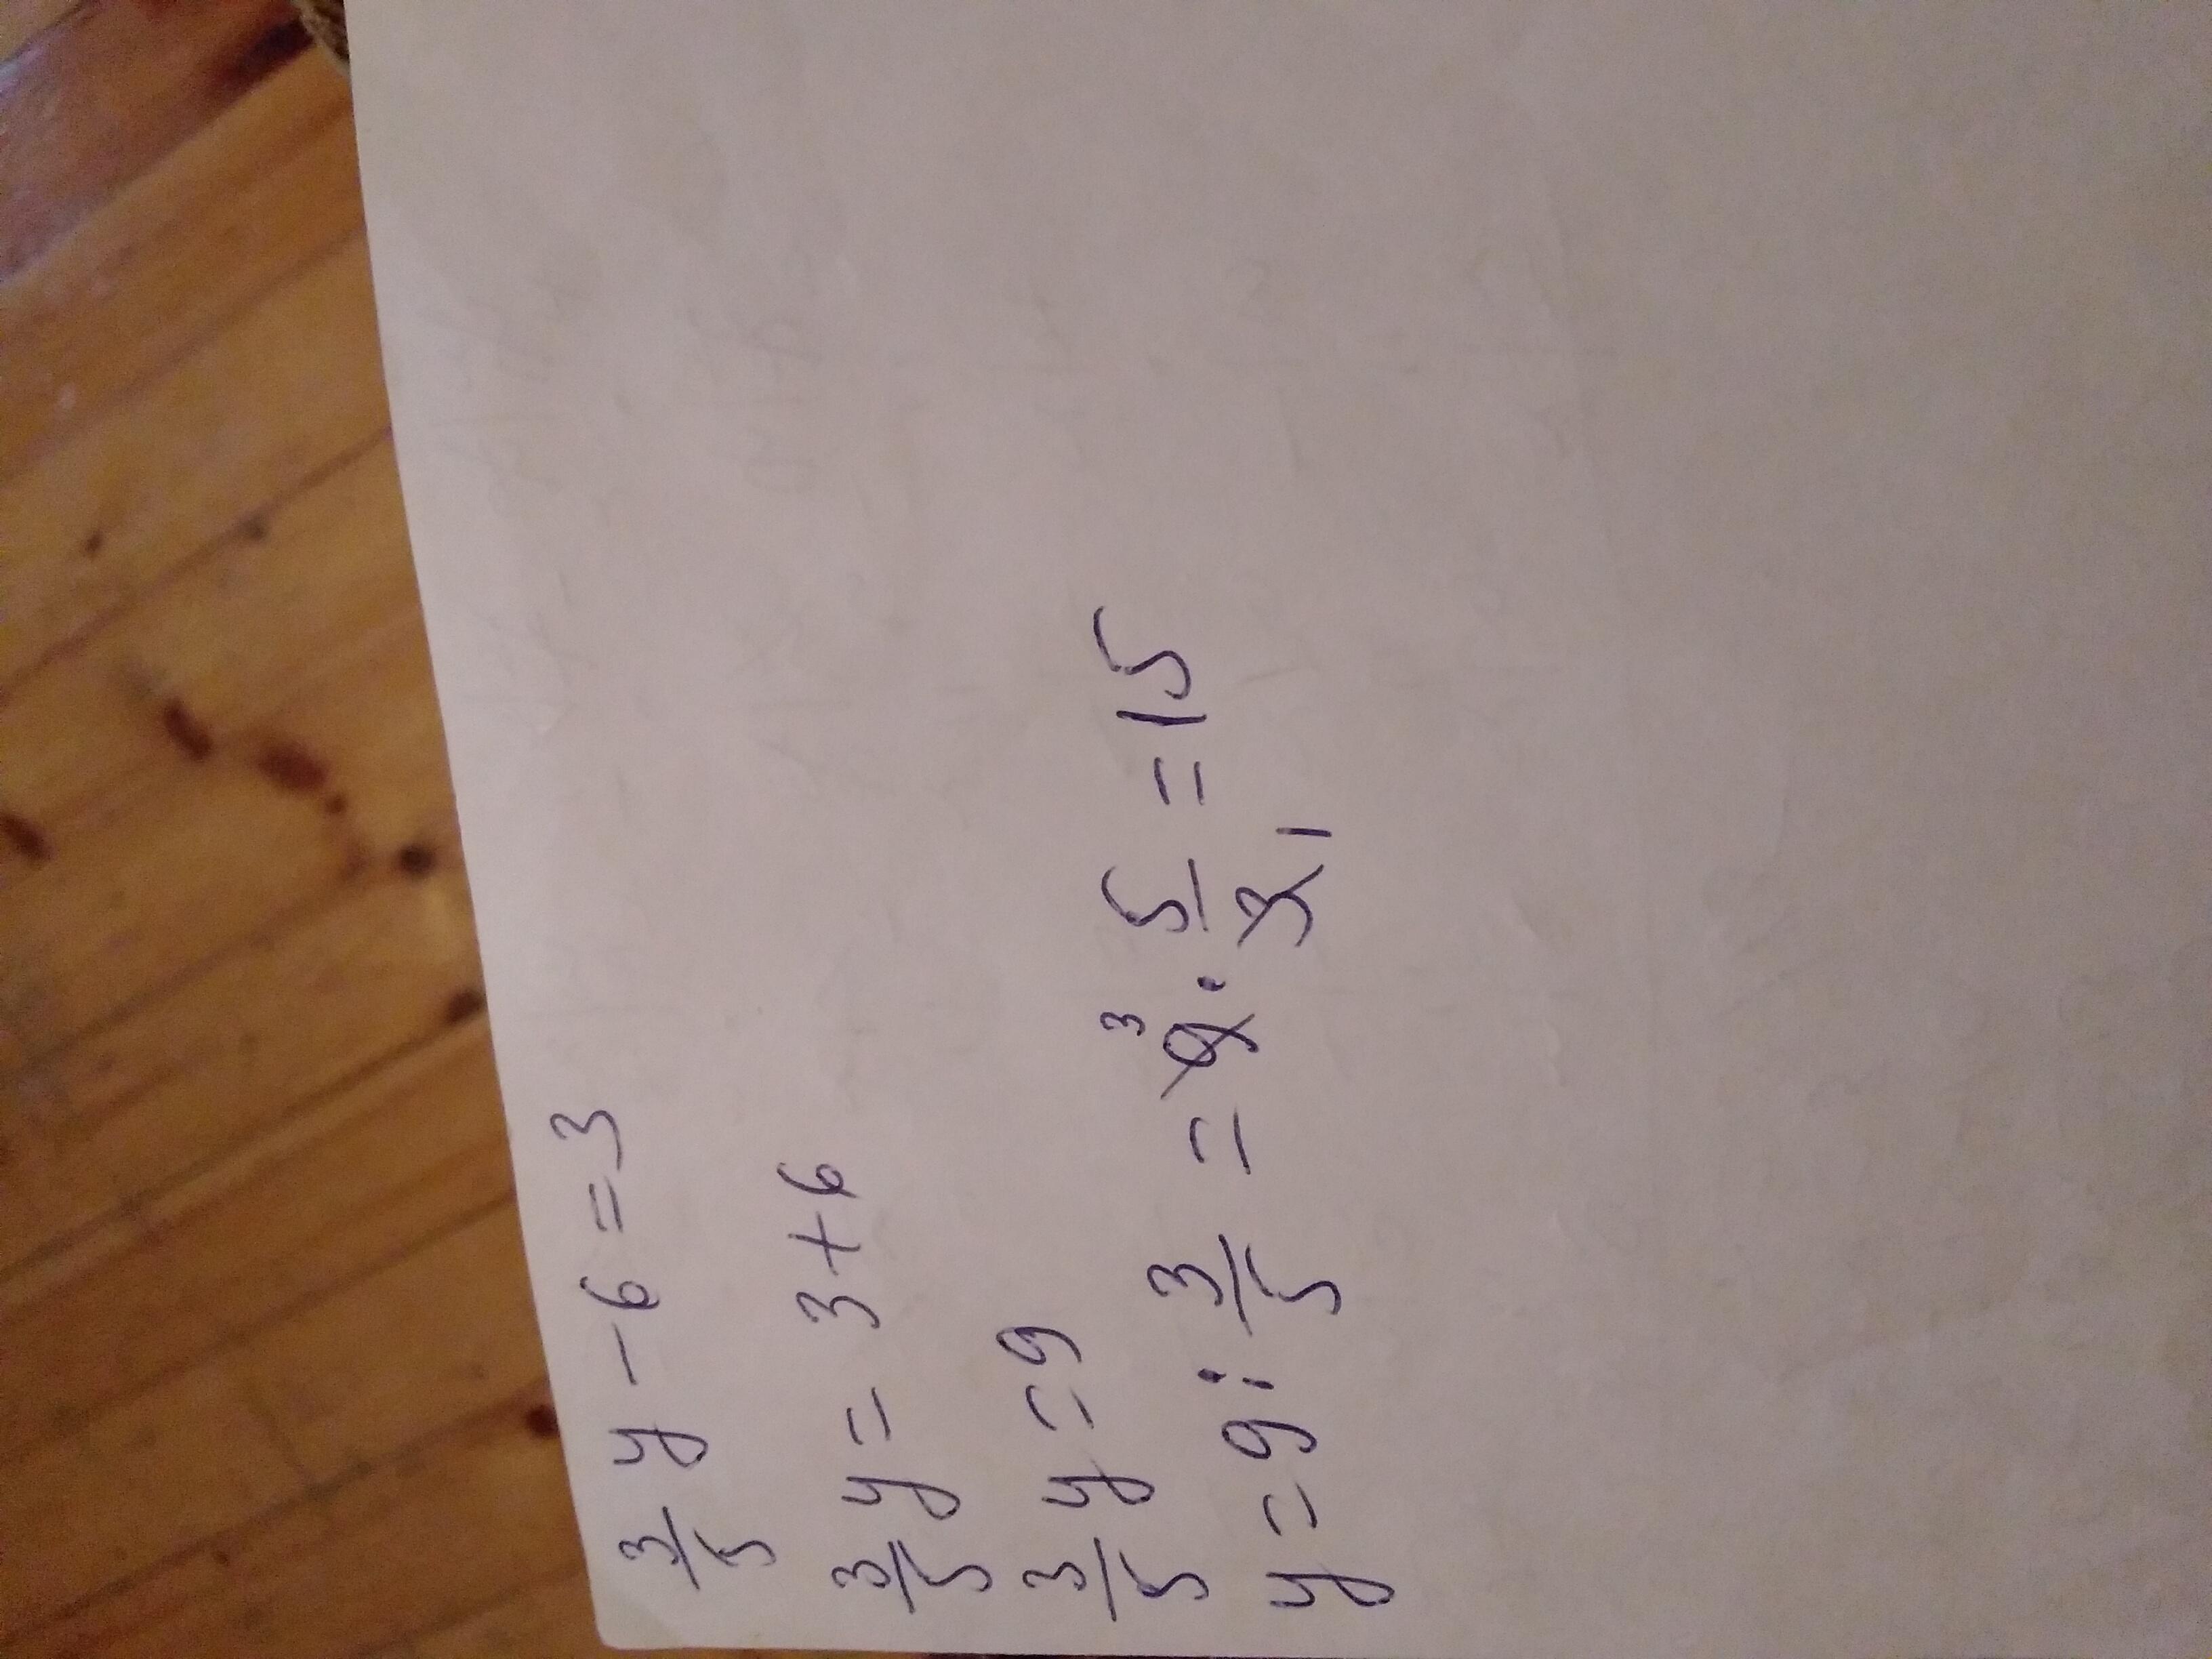 3/5 y - 6 = 3
3/5 y = 3 + 6
3/5 y = 9
y = 9 : 3/5 = 9 3 · 5/3 1 = 15